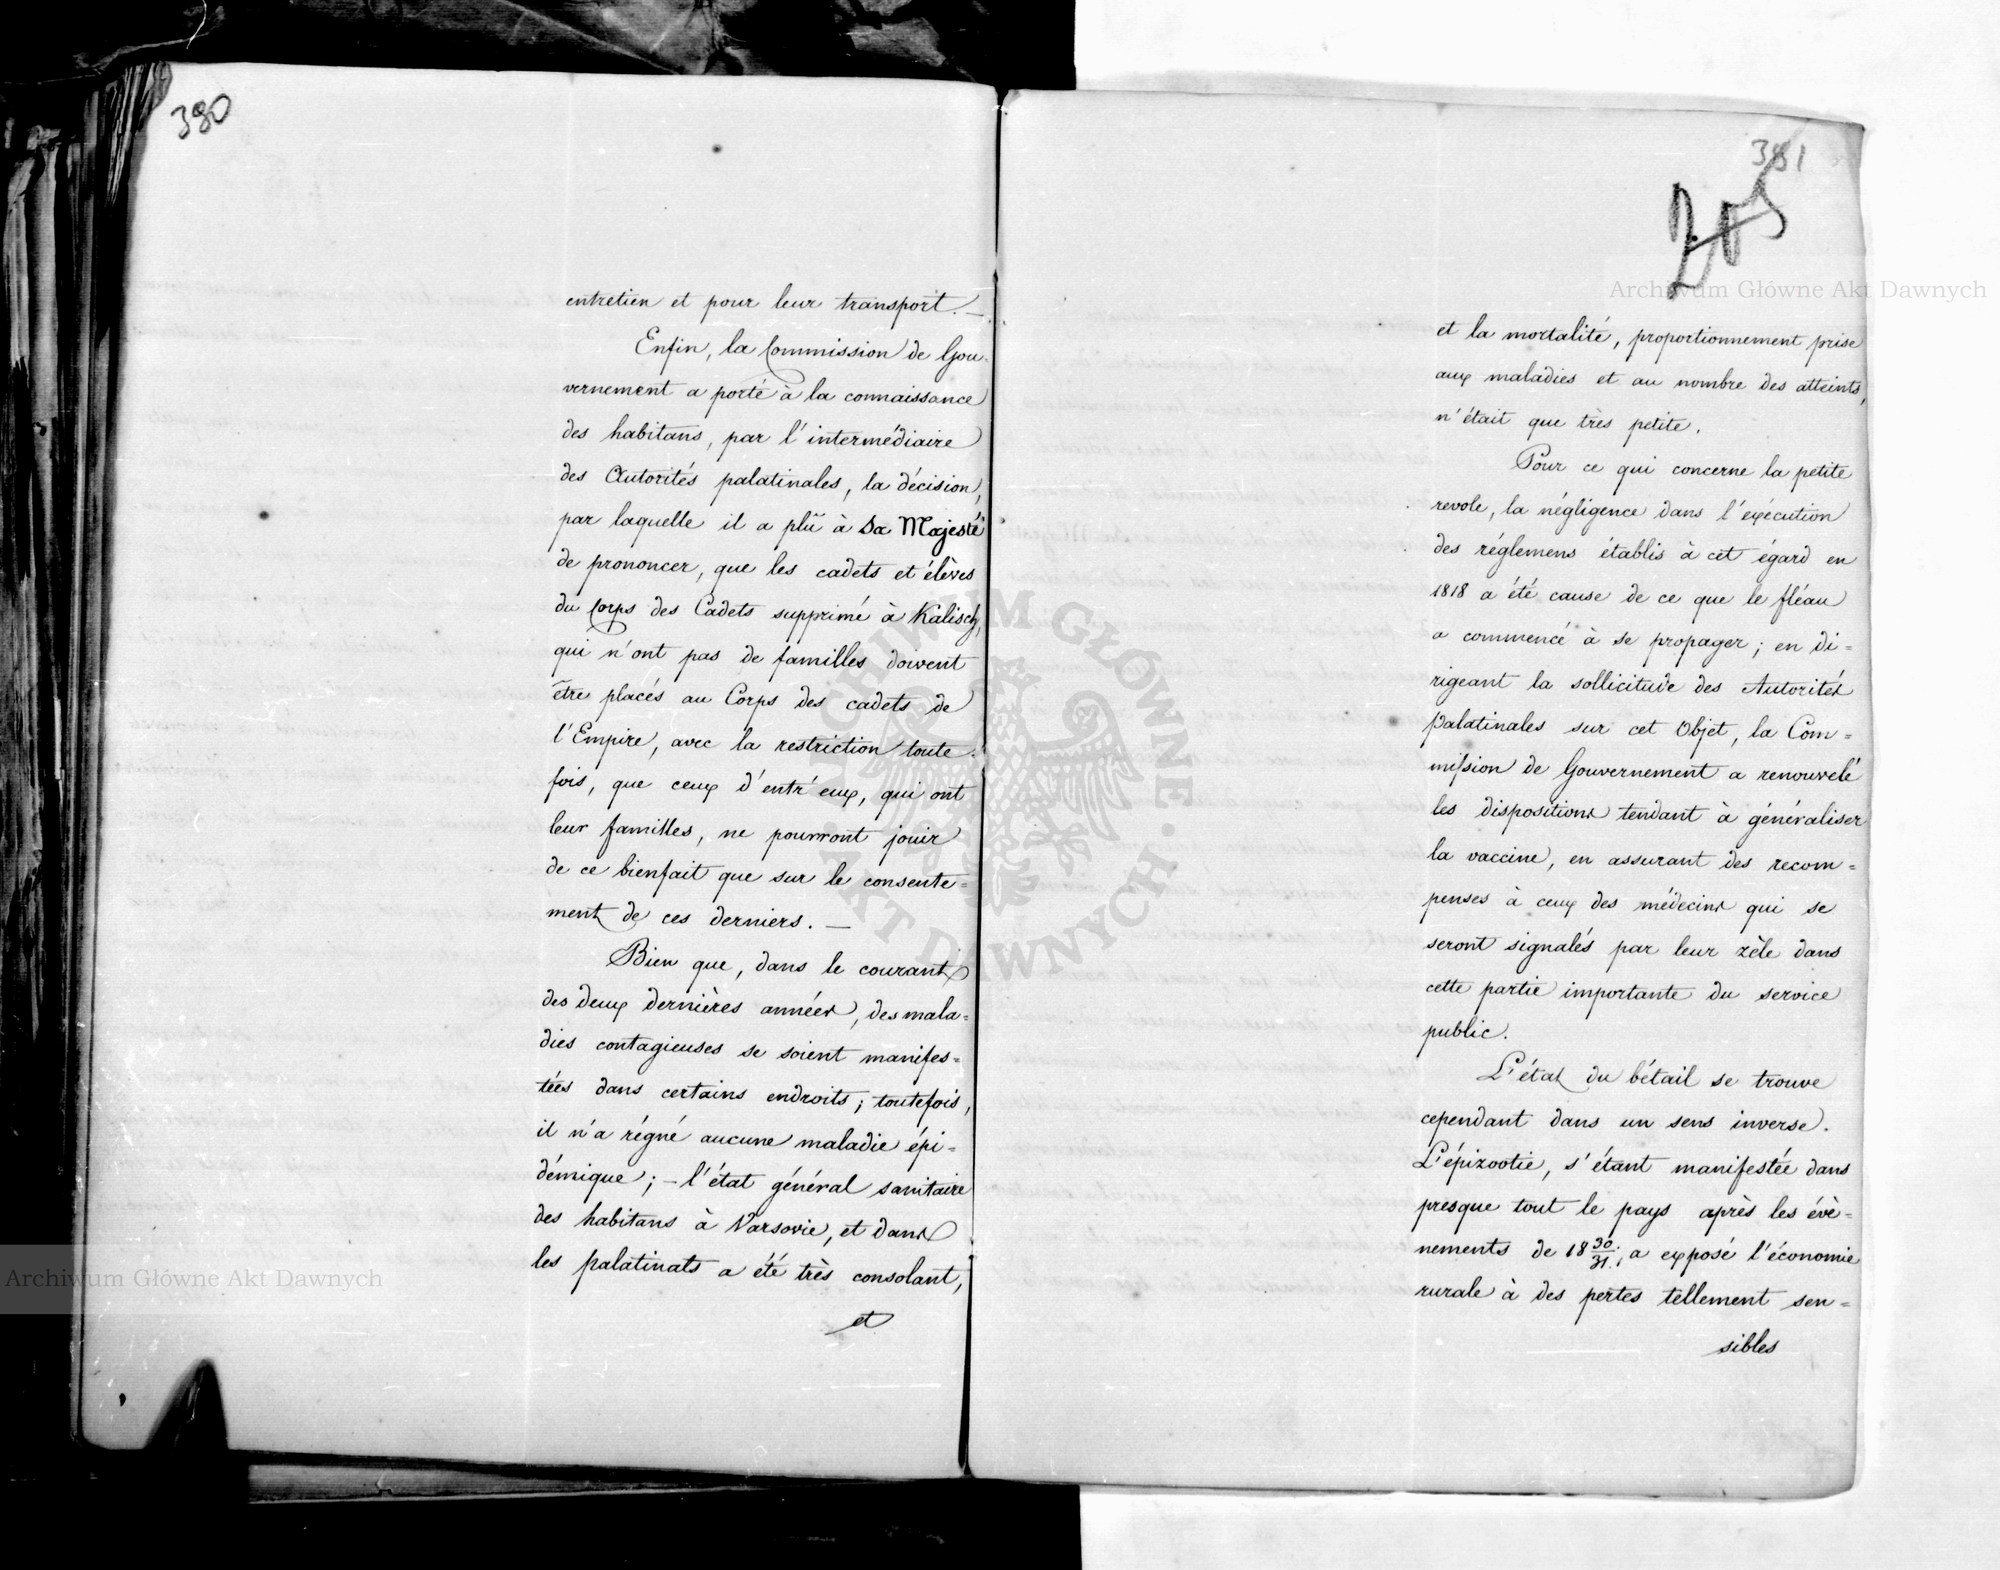 380
entretien et pour leur transport. —
Enfin, la Commission de Gou-
vernement a porté à la connaissance
des habitans, par l'intermédiaire
des Autorités palatinales, la décision,
par laquelle il a plû à Sa Majesté
de prononcer, que les cadets et élèves
du Corps des Cadets supprimé à Kalisch,
qui n'ont pas de familles doivent
être placés au Corps des cadets de
l'Empire, avec la restriction toute-
fois, que ceux d'entr'eux, qui ont
leur familles, ne pourront jouir
de ce bienfait que sur le consente=
ment de ces derniers. —
Bien que, dans le courant
des deux dernières années, des mala=
dies contagieuses se soient manifes=
tées dans certains endroits; toutefois,
il n'a régné aucune maladie épi=
démique; – l'état général sanitaire
des habitans à Varsovie, et dans
les palatinats a été très consolant,
et
381
205
et la mortalité, proportionnement prise
aux maladies et au nombre des atteints,
n'était que très petite.
Pour ce qui concerne la petite
verole, la négligence dans l'exécution
des réglemens établis à cet égard en
1818 a été cause de ce que le fléau
a commencé à se propager; en di=
rigeant la sollicitude des Autorités
palatinales sur cet Objet, la Com=
mission de Gouvernement a renouvelé
les dispositions tendant à généraliser
la vaccine, en assurant des recom=
penses à ceux des médecins qui se
seront signalés par leur zèle dans
cette partie importante du service
public.
L'état du bétail se trouve
cependant dans un sens inverse.
L'épizootie, s'étant manifestée dans
presque tout le pays après les évè=
nements de 18 30/31, a exposé l'économie
rurale à des pertes tellement sen=
sibles
Archiwum Główne Akt Dawnych
Archiwum Główne Akt Dawnych
ARCHIWUM GŁÓWNE · AKT DAWNYCH ·